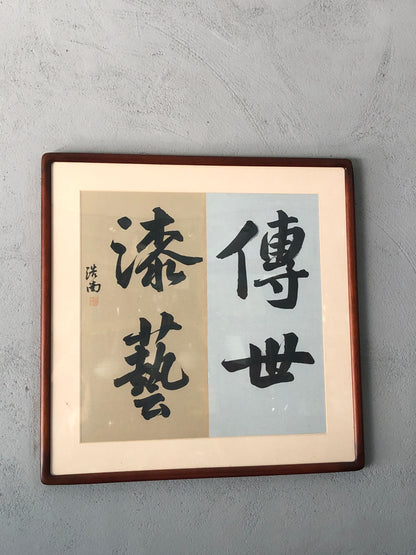 傳世
漆藝
浩南